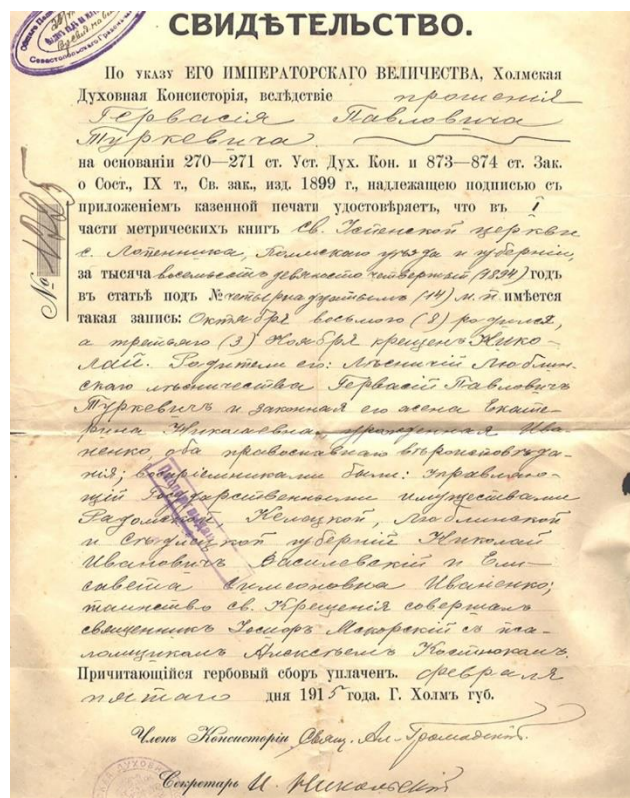 СВИДѢТЕЛЬСТВО.
По указу ЕГО ИМПЕРАТОРСКАГО ВЕЛИЧЕСТВА, Холмская
Духовная Консисторія, вслѣдствіе прошенія
Гервасія Павловича
Туркевича
на основаніи 270—271 ст. Уст. Дух. Кон. и 873—874 ст. Зак.
о Сост., IX т., Св. зак., изд. 1899 г., надлежащею подписью съ
приложеніемъ казенной печати удостовѣряетъ, что въ I
части метрическихъ книгъ Св. Успенской церкви
с. Лопенника, Холмскаго уѣзда и губерніи,
за тысяча восемьсотъ девяносто четвертый (1894) годъ
въ статьѣ подъ № четырнадцатымъ (14) м. п. имѣется
такая запись: Октября восьмого (8) родился,
а третьяго (3) Ноября крещенъ Нико-
лай. Родители его: Лѣсничій Люблин-
скаго лѣсничества Гервасій Павловичъ
Туркевичъ и законная его жена Екате-
рина Николаевна, урожденная Ива-
ненко, оба православнаго вѣроисповѣда-
нія; воспріемниками были: Управляю-
щій Государственными имуществами
Радомской, Келецкой, Люблинской
и Сѣдлецкой губерній Николай
Ивановичъ Василевскій и Ели-
савета Симеоновна Иваненко;
таинство св. Крещенія совершалъ
священникъ съ пса-
ломщикомъ Алексѣемъ
Причитающійся гербовый сборъ уплаченъ. февраля
пятаго дня 1915 года. Г. Холмъ губ.
Членъ Консисторіи Свящ. Ал. Громадскій.
Секретарь И. Никольскій
№